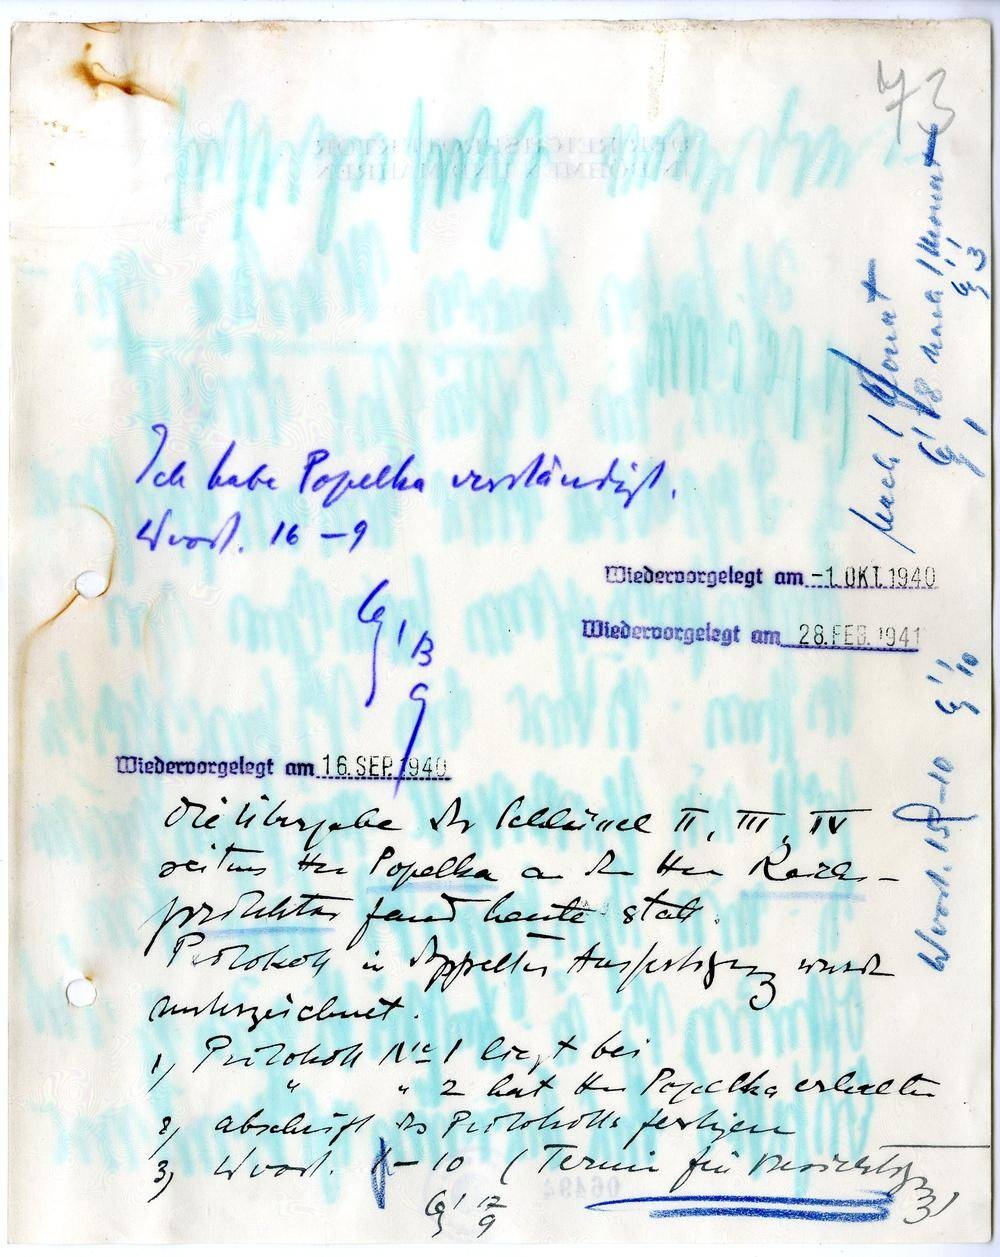 73
Ich habe Popelka verständigt.
Wvorl. 16 – 9
Wiedervorgelegt am -1. OKT. 1940
Wiedervorgelegt am 28. FEB. 1941
Wiedervorgelegt am 16. SEP. 1940
Die Übergabe der Schlüssel II, III, IV
seitens Herrn Popelka an den Herrn Reichs-
protektor fand heute statt.
Protokoll in doppelter Ausfertigung wurde
unterzeichnet.
1, Protokoll No 1 liegt bei
" " 2 hat Herr Popelka erhalten
2, Abschrift des Protokolls fertigen
3, Wvorl. – 10 (Termin für Besichtigung
3)
17
9
nach 1 Monat
nach 1 Monat
Wvorl. 15 – 10
06494